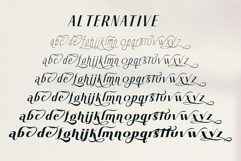 ALTERNATIVE
abcdefghijklmnopqrstuvwxyz
abcdefghijklmnopqrstuvwxyz
abcdefghijklmnopqrstuvwxyz
abcdefghijklmnopqrstuvwxyz
abcdefghijklmnopqrstuvwxyz
abcdefghijklmnopqrstuvwxyz